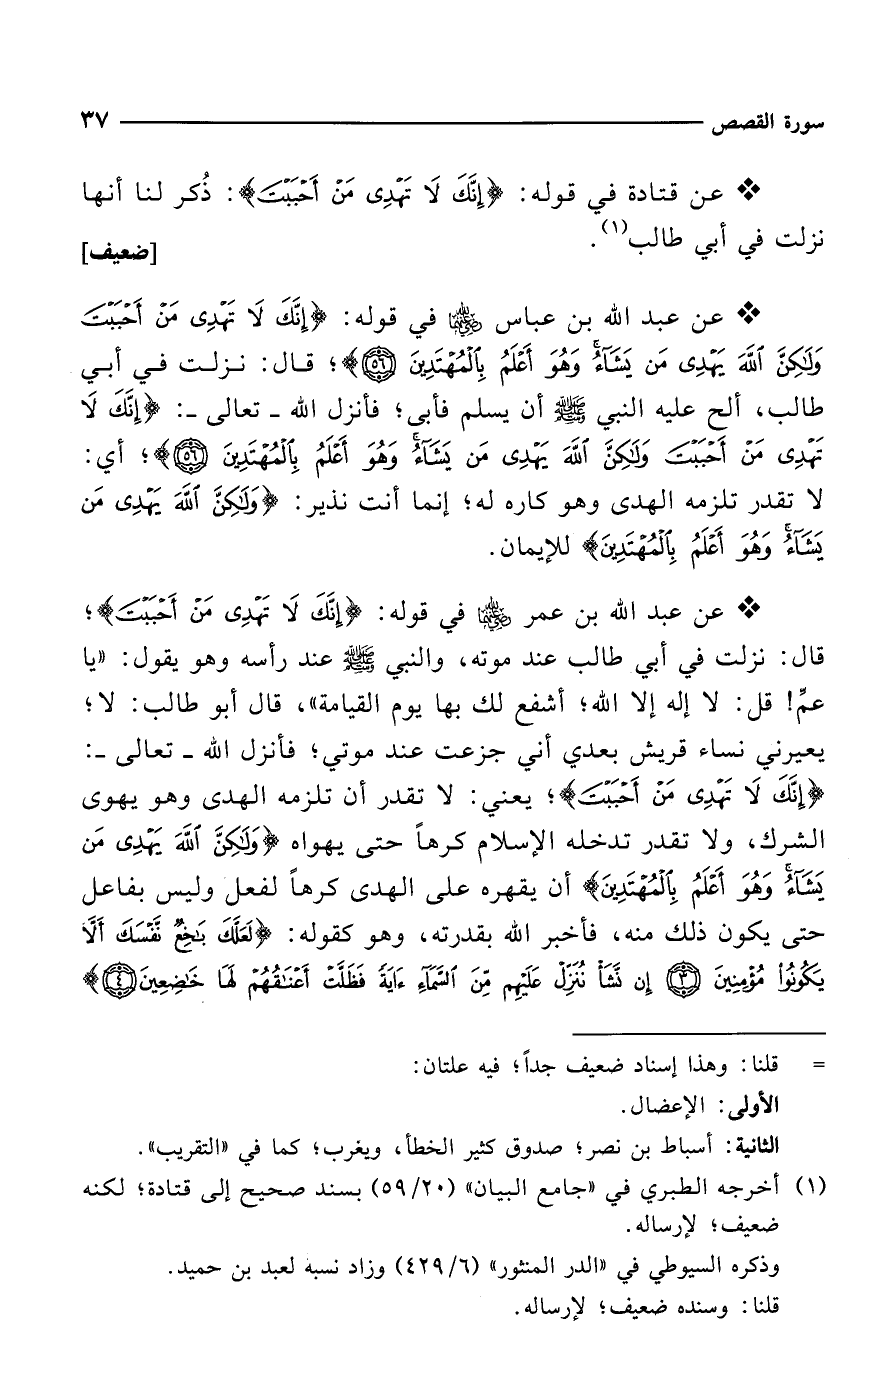 سورة القصص ٣٧
❖ عن قتادة في قوله: ﴿إِنَّكَ لَا تَهْدِى مَنْ أَحْبَبْتَ﴾: ذُكر لنا أنها
نزلت في أبي طالب(١). [ضعيف]
❖ عن عبد الله بن عباس رضي الله عنهما في قوله: ﴿إِنَّكَ لَا تَهْدِى مَنْ أَحْبَبْتَ
وَلَٰكِنَّ ٱللَّهَ يَهْدِى مَن يَشَآءُ ۚ وَهُوَ أَعْلَمُ بِٱلْمُهْتَدِينَ ﴿٥٦﴾﴾؛ قال: نزلت في أبي
طالب، ألح عليه النبي ﷺ أن يسلم فأبى؛ فأنزل الله ـ تعالى ـ: ﴿إِنَّكَ لَا
تَهْدِى مَنْ أَحْبَبْتَ وَلَٰكِنَّ ٱللَّهَ يَهْدِى مَن يَشَآءُ ۚ وَهُوَ أَعْلَمُ بِٱلْمُهْتَدِينَ ﴿٥٦﴾﴾؛ أي:
لا تقدر تلزمه الهدى وهو كاره له؛ إنما أنت نذير: ﴿وَلَٰكِنَّ ٱللَّهَ يَهْدِى مَن
يَشَآءُ ۚ وَهُوَ أَعْلَمُ بِٱلْمُهْتَدِينَ﴾ للإيمان.
❖ عن عبد الله بن عمر رضي الله عنهما في قوله: ﴿إِنَّكَ لَا تَهْدِى مَنْ أَحْبَبْتَ﴾؛
قال: نزلت في أبي طالب عند موته، والنبي ﷺ عند رأسه وهو يقول: «يا
عمِّ! قل: لا إله إلا الله؛ أشفع لك بها يوم القيامة»، قال أبو طالب: لا؛
يعيرني نساء قريش بعدي أني جزعت عند موتي؛ فأنزل الله ـ تعالى ـ:
﴿إِنَّكَ لَا تَهْدِى مَنْ أَحْبَبْتَ﴾؛ يعني: لا تقدر أن تلزمه الهدى وهو يهوى
الشرك، ولا تقدر تدخله الإسلام كرهاً حتى يهواه ﴿وَلَٰكِنَّ ٱللَّهَ يَهْدِى مَن
يَشَآءُ ۚ وَهُوَ أَعْلَمُ بِٱلْمُهْتَدِينَ﴾ أن يقهره على الهدى كرهاً لفعل وليس بفاعل
حتى يكون ذلك منه، فأخبر الله بقدرته، وهو كقوله: ﴿لَعَلَّكَ بَٰخِعٌ نَّفْسَكَ أَلَّا
يَكُونُوا۟ مُؤْمِنِينَ ﴿٣﴾ إِن نَّشَأْ نُنَزِّلْ عَلَيْهِم مِّنَ ٱلسَّمَآءِ ءَايَةً فَظَلَّتْ أَعْنَٰقُهُمْ لَهَا خَٰضِعِينَ ﴿٤﴾﴾
= قلنا: وهذا إسناد ضعيف جداً؛ فيه علتان:
الأولى: الإعضال.
الثانية: أسباط بن نصر؛ صدوق كثير الخطأ، ويغرب؛ كما في «التقريب».
(١) أخرجه الطبري في «جامع البيان» (٥٩/٢٠) بسند صحيح إلى قتادة؛ لكنه
ضعيف؛ لإرساله.
وذكره السيوطي في «الدر المنثور» (٤٢٩/٦) وزاد نسبه لعبد بن حميد.
قلنا: وسنده ضعيف؛ لإرساله.